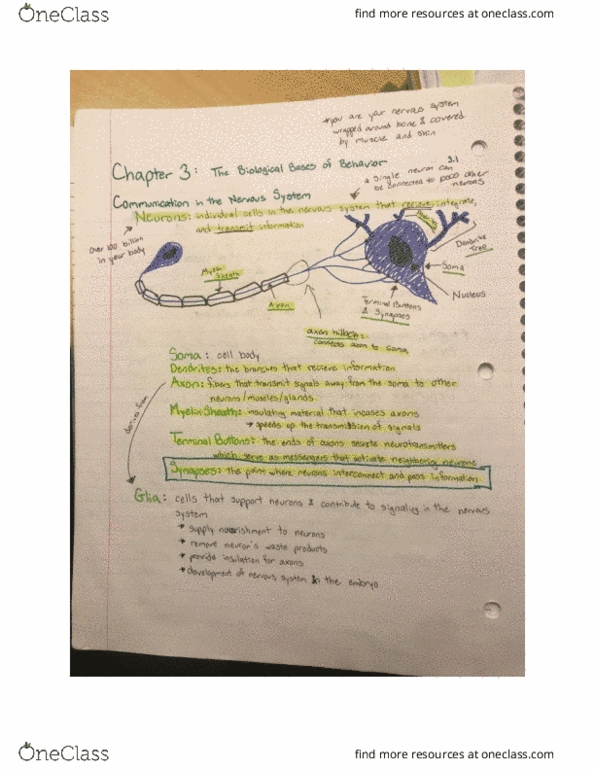 OneClass
find more resources at oneclass.com
you are your nervous system
wrapped around bone & covered
by muscle and skin
Chapter 3: The Biological Bases of Behavior
3.1
a single neuron can
be connected to 10000 other
neurons
Communication in the Nervous System
Neurons: individual cells in the nervous system that recieve, integrate,
and transmit information
over 100 billion
in your body
Myelin
Sheath
Axon
Dendrite
Tree
Soma
Nucleus
Terminal Buttons
& Synapses
axon hillock:
connects axon to soma
Soma: cell body
Dendrites: the branches that recieve information
Axon: fibers that transmit signals away from the soma to other
neurons/muscles/glands
Myelin Sheath: insulating material that incases axons
→ speeds up the transmission of signals
derives from
Terminal Buttons: the ends of axons secrete neurotransmitters
which serve as messengers that activate neighboring neurons
Synapses: the point where neurons interconnect and pass information
Glia: cells that support neurons & contribute to signaling in the nervous
system
→ supply nourishment to neurons
→ remove neuron's waste products
→ provide insulation for axons
→ development of nervous system in the embryo
OneClass
find more resources at oneclass.com